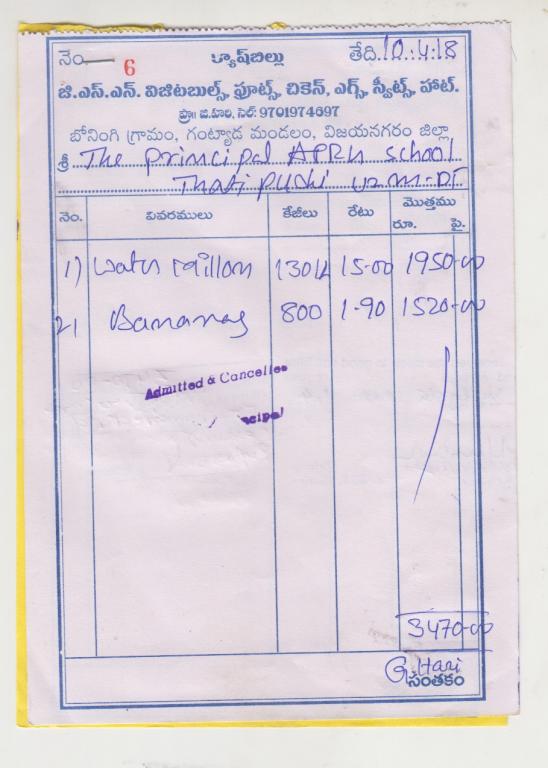 నెం. 6 క్యాష్‌బిల్లు తేది. 10.4.18
జి.ఎస్.ఎన్. విజిటబుల్స్, ఫ్రూట్స్, చికెన్, ఎగ్స్, స్వీట్స్, హాట్.
ప్రొ॥ జి.హరి, సెల్: 9701974697
బోనింగి గ్రామం, గంట్యాడ మండలం, విజయనగరం జిల్లా
శ్రీ The principal APRH school
Thatipudi vzm-DT
నెం. వివరములు కేజీలు రేటు మొత్తము
రూ. పై.
1) Water millom 130 15-00 1950-00
2) Bananas 800 1-90 1520-00
Admitted & Cancelled
3470-00
G. Hari
సంతకం